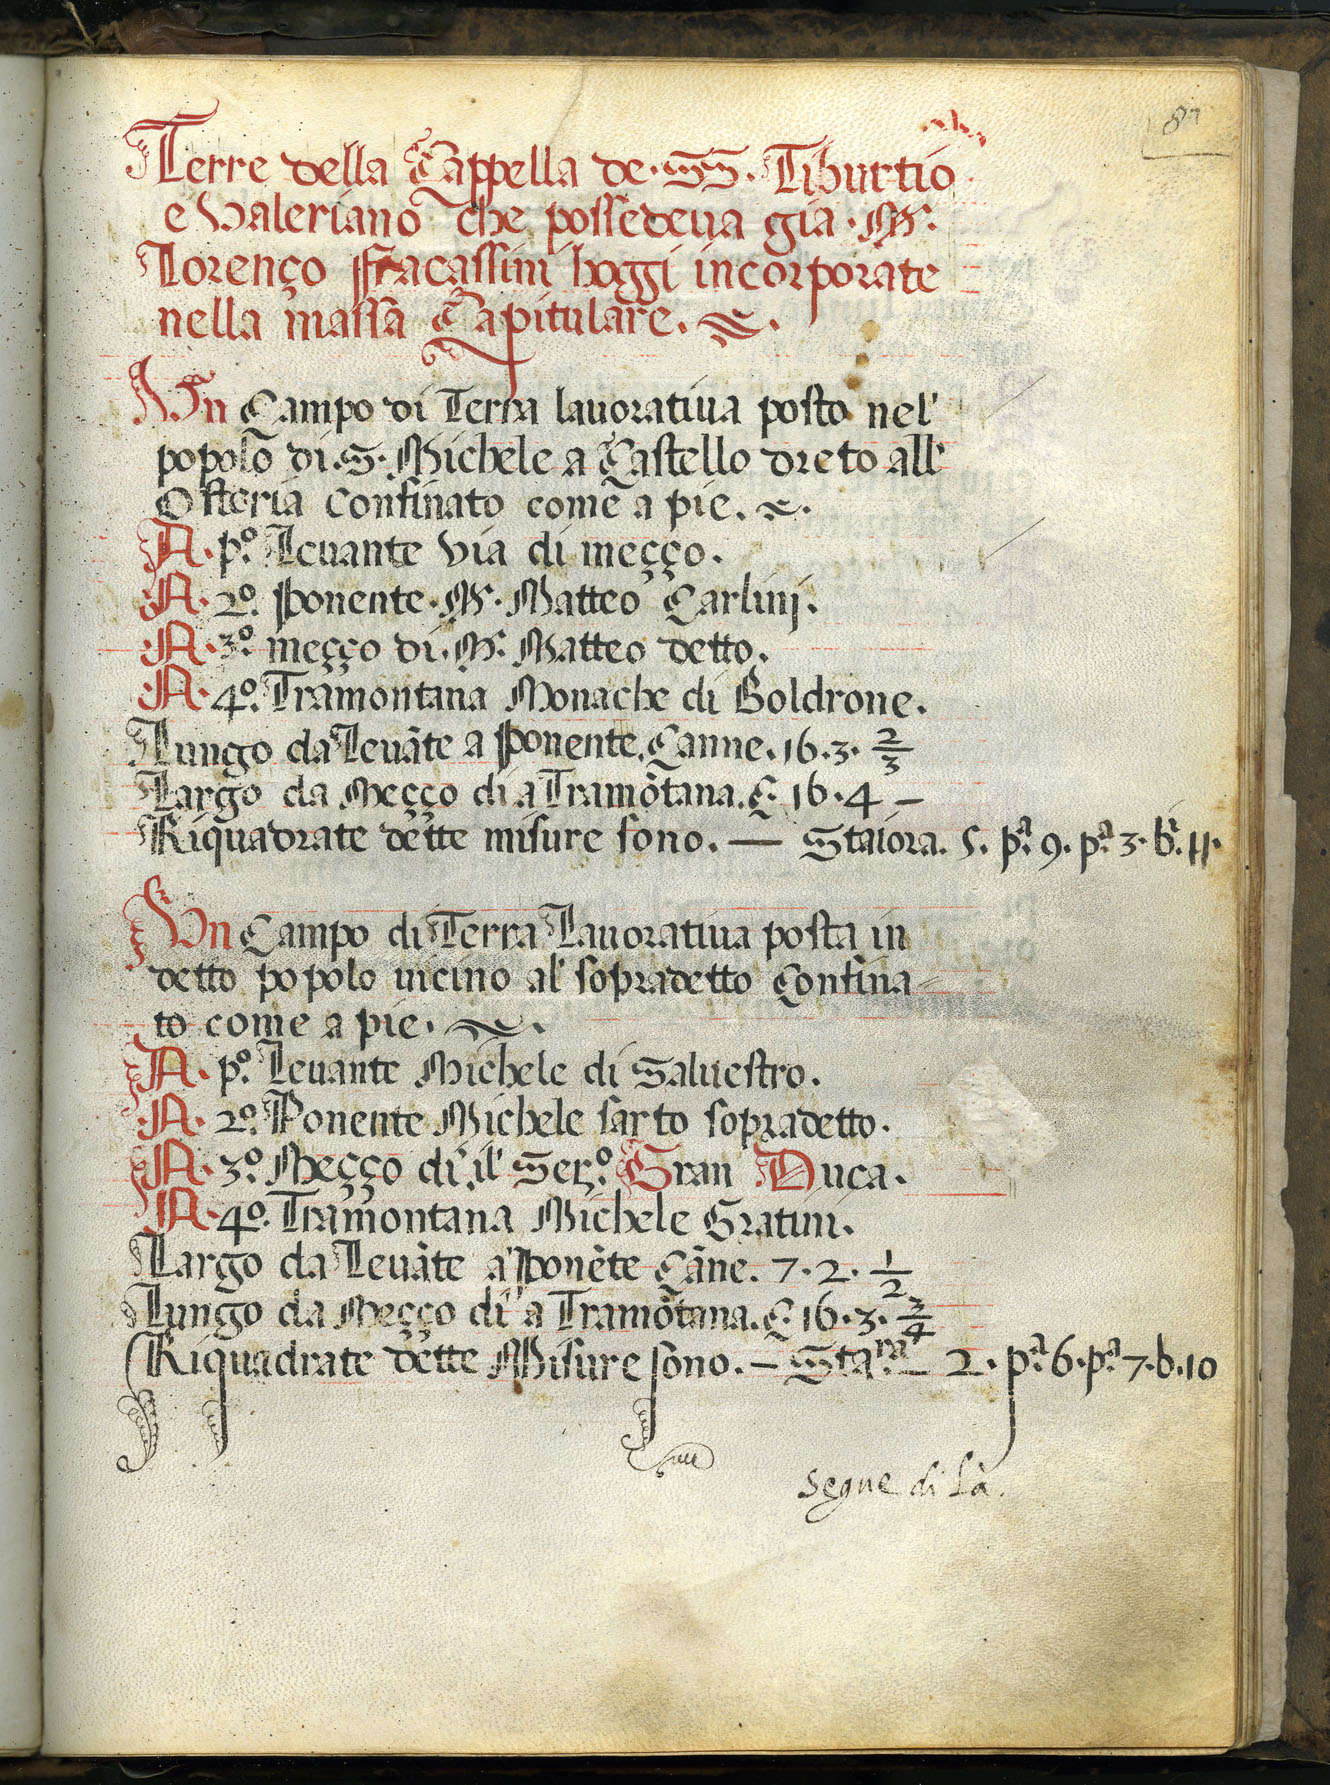 87
Terre della Cappella de·SS· Tiburtio
e Valeriano che possedeua gia·Mr·
Lorenço Fracassini hoggi incorporate
nella massa Capitulare.
Un Campo di Terra lauoratiua posto nel'
popolo di·S·Michele a Castello dreto all'
Osteria confinato come a pie.
A·po. Leuante via di meççо.
A·2o. Ponente·Mr·Matteo Carlinj.
A·3o. meçço di·Mr. Matteo detto.
A·4o. Tramontana Monache di Boldrone.
Lungo da Leuāte a Ponente. Canne·16·3· 2/3
Largo da Meçço di a Tramōtana. C· 16·4 —
Riquadrate dette misure sono. — Staiora. 5. pa. 9. pa. 3. bi. 11.
Un Campo di Terra Lauoratiua posta in
detto popolo uicino al' sopradetto Confina=
to come a pie.
A·po. Leuante Michele di Saluestro.
A·2o. Ponente Michele sarto sopradetto.
A·3o. Meçço di' il' Sero. Gran Duca.
A·4o. Tramontana Michele Gratini.
Largo da Leuāte a' Ponēte Cāne. 7·2· 1/2
Lungo da Meçço di' a Tramōtana. C· 16·3· 3/4
Riquadrate dette Misure sono. — Stara. — 2· pa. 6·pa. 7·b·10
segue di là.